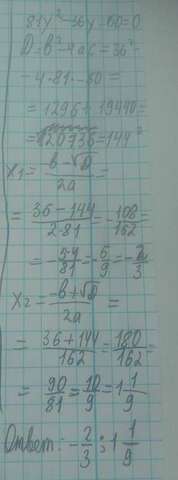 81y² - 36y - 60 = 0
D = b² - 4ac = 36² -
- 4 · 81 · -60 =
= 1296 + 19440 =
= 20736 = 144²
x₁ = (b - √D) / 2a =
= (36 - 144) / (2 · 81) = -108/162 =
= -54/81 = -6/9 = -2/3
x₂ = (-b + √D) / 2a =
= (36 + 144) / 162 = 180/162 =
= 90/81 = 10/9 = 1 1/9
Ответ: -2/3 ; 1 1/9